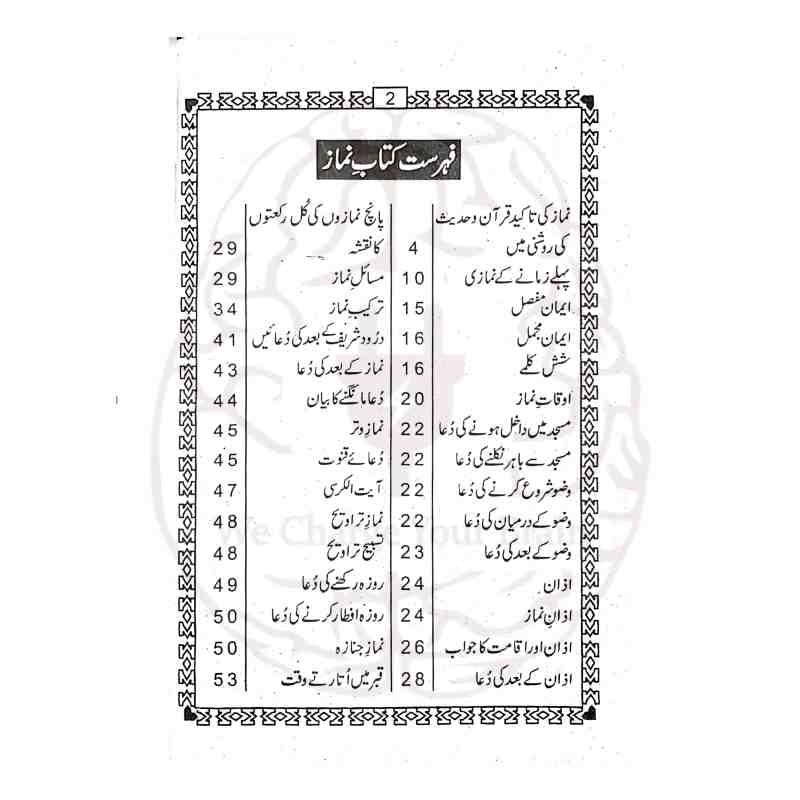 2
فہرست کتابِ نماز
نماز کی تاکید قرآن وحدیث
کی روشنی میں 4
پہلے زمانے کے نمازی 10
ایمان مفصل 15
ایمان مجمل 16
شش کلمے 16
اوقاتِ نماز 20
مسجد میں داخل ہونے کی دُعا 22
مسجد سے باہر نکلنے کی دُعا 22
وضو شروع کرنے کی دُعا 22
وضو کے درمیان کی دُعا 22
وضو کے بعد کی دُعا 23
اذان 24
اذانِ نماز 24
اذان اور اقامت کا جواب 26
اذان کے بعد کی دُعا 28
پانچ نمازوں کی کُل رکعتوں
کا نقشہ 29
مسائلِ نماز 29
ترکیبِ نماز 34
درُود شریف کے بعد کی دُعائیں 41
نماز کے بعد کی دُعا 43
دُعا مانگنے کا بیان 44
نمازِ وتر 45
دُعائے قنوت 45
آیت الکرسی 47
نمازِ تراویح 48
تسبیح تراویح 48
روزہ رکھنے کی دُعا 49
روزہ افطار کرنے کی دُعا 50
نمازِ جنازہ 50
قبر میں اُتارتے وقت 53
We Change Your Brain